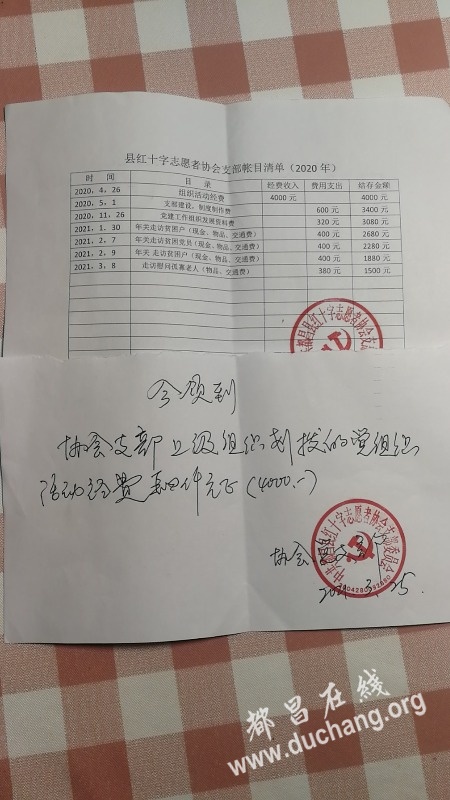 县红十字志愿者协会支部帐目清单（2020 年）
时 间 目 录 经费收入 费用支出 结存金额
2020，4，26 组织活动经费 4000 元 4000 元
2020，5，1 支部建设，制度制作费 600 元 3400 元
2020，11，26 党建工作组织发展资料费 320 元 3080 元
2021，1，30 年关走访贫困户（现金、物品、交通费） 400 元 2680 元
2021，2，7 年关走访贫困党员（现金、物品、交通费） 400 元 2280 元
2021，2，9 年关 走访贫困户（现金、物品、交通费） 400 元 1880 元
2021，3，8 走访慰问孤寡老人（物品、交通费） 380 元 1500 元
都昌县红十字志愿者协会支部
今领到
协会支部上级组织划拨的党组织
活动经费 元正（4000.-）
协会党支部
中共都昌县红十字志愿者协会支部委员会
3，25.
都昌在线
www.duchang.org